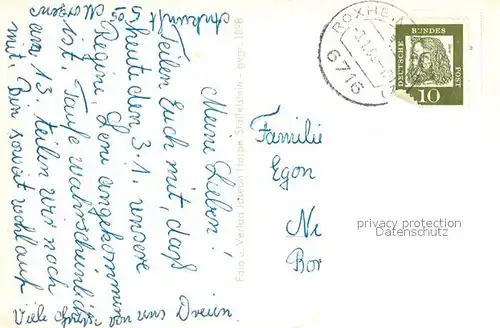 Meine Lieben!
Teilen Euch mit, daß
heute den 3.1. unsere
Regina Leni angekommen
ist. Taufe wahrscheinlich
am 13. teilen wir noch
mit. Bin soweit wohlauf
Viele Grüße von uns Dreien.
Ankunft
5
Morgens
Foto u. Verlag Staffelstein
ROXHEIM
6716
DEUTSCHE BUNDESPOST
10
Familie
Egon
Ne
Bor
privacy protection
Datenschutz